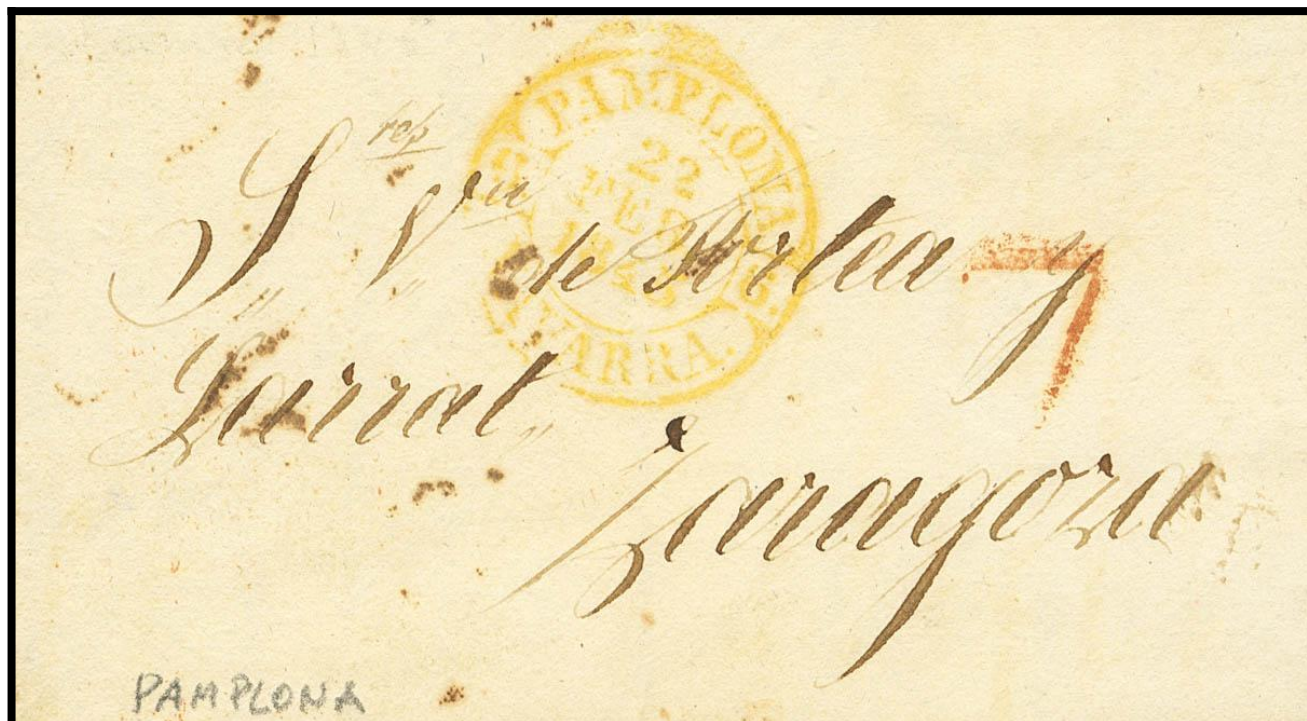 PAMPLONA
22
FEB
NAVARRA.
S,, res V,, da de Artea y
Larral,,
Zaragoza
7
PAMPLONA